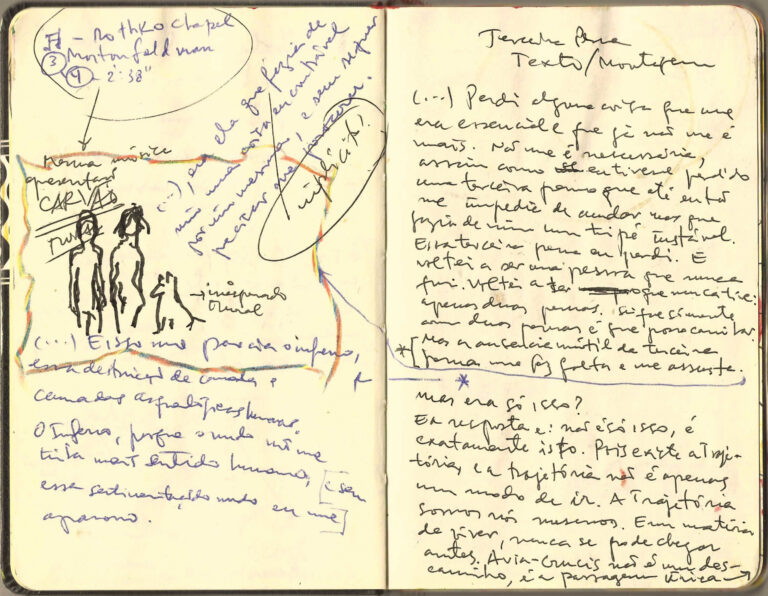 ♫ - Rothko Chapel
③ Morton Feldman
④ - 2'38"
(...), era ela que fazia de
mim uma coisa encontrável
por mim mesma, e sem sequer
precisar me procurar.
implícito!
mesma música
apresentação
CARVÃO
mural
→ inesperado
mural
(...) E isso me parecia o inferno,
essa destruição de camadas e
camadas arqueológicas humanas.
O inferno, porque o mundo não me
tinha mais sentido humano, [e sem
essa sentimentação do mundo eu me]
apavoro.
Terceira Perna
Texto/Montagem
(...) Perdi alguma coisa que me
era essencial e que já não me é
mais. Não me é necessária,
assim como se eu tivesse perdido
uma terceira perna que até então
me impedia de andar mas que
fazia de mim um tripé instável.
Essa terceira perna eu perdi. E
voltei a ser uma pessoa que nunca
fui. Voltei a ter o que nunca tive:
apenas duas pernas. Sei que somente
com duas pernas é que posso caminhar.
* [Mas a ausência inútil da terceira
perna me faz falta e me assusta.
*
mas era só isso?
E a resposta é: não é só isso, é
exatamente isto. Pois existe a traje-
tória, e a trajetória não é apenas
um modo de ir. A trajetória
somos nós mesmos. Em matéria
de viver, nunca se pode chegar
antes. A via-crucis não é um des-
caminho, é a passagem única →